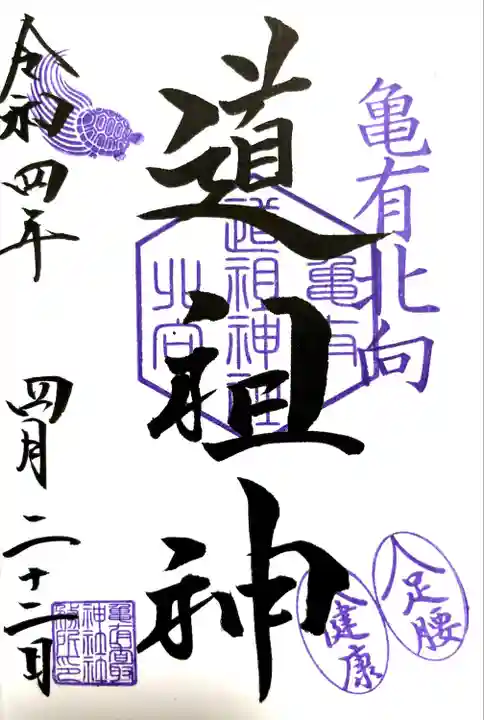 亀有北向
道祖神
亀有
道祖神社
北向
令和四年 四月二十二日
足腰
健康
亀有香取
神社社
務所印